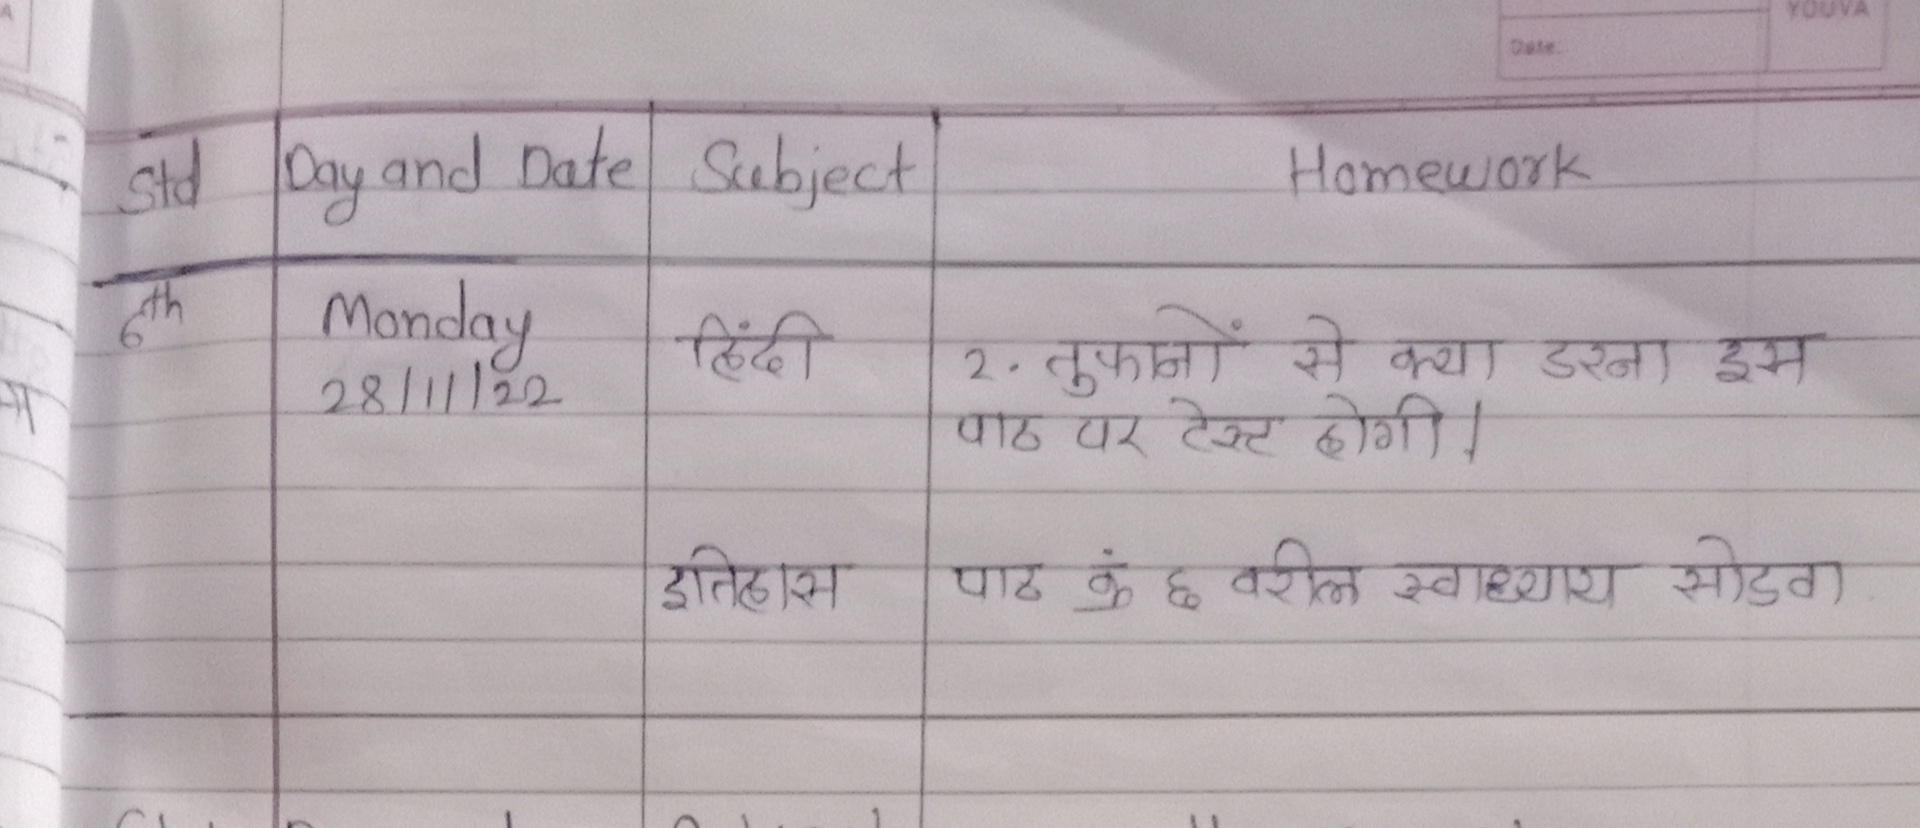 YOUVA
Date:
Std Day and Date Subject Homework
6th Monday हिंदी 2. तुफानों से क्या डरना इस
28/11/22 पाठ पर टेस्ट होगी।
इतिहास पाठ क्रं ६ वरील स्वाध्याय सोडवा